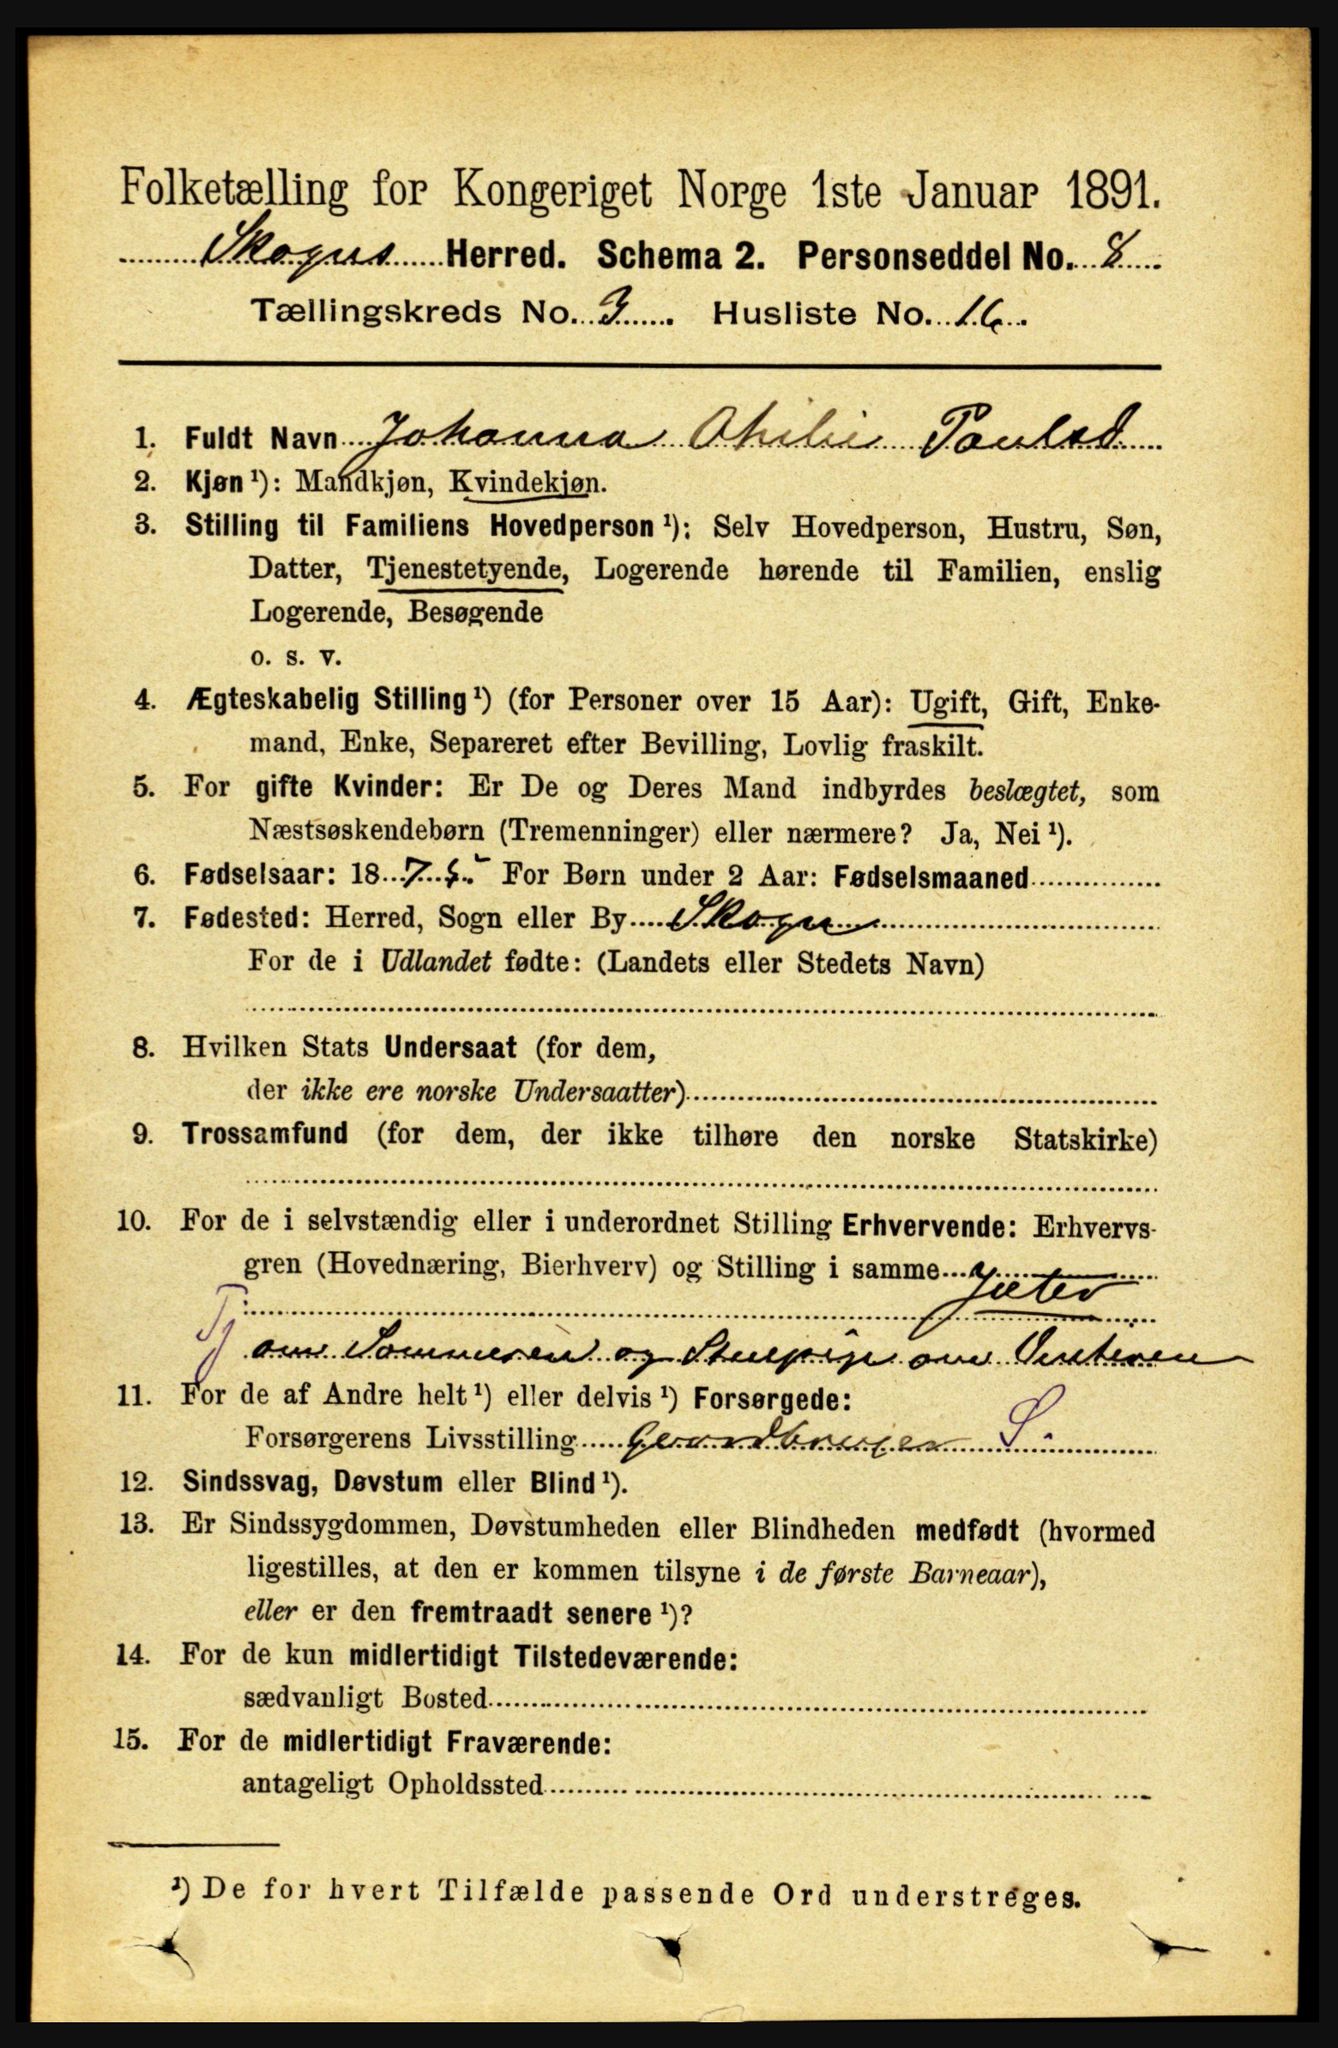 Folketælling for Kongeriget Norge 1ste Januar 1891.
Skogns Herred. Schema 2. Personseddel No. 8
Tællingskreds No. 3 Husliste No. 16
1. Fuldt Navn Johanna Othilie Paulsd
2. Kjøn ¹): Mandkjøn, Kvindekjøn.
3. Stilling til Familiens Hovedperson ¹): Selv Hovedperson, Hustru, Søn,
Datter, Tjenestetyende, Logerende hørende til Familien, enslig
Logerende, Besøgende
o. s. v.
4. Ægteskabelig Stilling ¹) (for Personer over 15 Aar): Ugift, Gift, Enke-
mand, Enke, Separeret efter Bevilling, Lovlig fraskilt.
5. For gifte Kvinder: Er De og Deres Mand indbyrdes beslægtet, som
Næstsøskendebørn (Tremenninger) eller nærmere? Ja, Nei ¹).
6. Fødselsaar: 1875 For Børn under 2 Aar: Fødselsmaaned
7. Fødested: Herred, Sogn eller By Skogn
For de i Udlandet fødte: (Landets eller Stedets Navn)
8. Hvilken Stats Undersaat (for dem,
der ikke ere norske Undersaatter)
9. Trossamfund (for dem, der ikke tilhøre den norske Statskirke)
10. For de i selvstændig eller i underordnet Stilling Erhvervende: Erhvervs-
gren (Hovednæring, Bierhverv) og Stilling i samme Jæter
Tj om Sommeren og Stuepige om Vinteren
11. For de af Andre helt ¹) eller delvis ¹) Forsørgede:
Forsørgerens Livsstilling Gaardbruger S.
12. Sindssvag, Døvstum eller Blind ¹).
13. Er Sindssygdommen, Døvstumheden eller Blindheden medfødt (hvormed
ligestilles, at den er kommen tilsyne i de første Barneaar),
eller er den fremtraadt senere ¹)?
14. For de kun midlertidigt Tilstedeværende:
sædvanligt Bosted
15. For de midlertidigt Fraværende:
antageligt Opholdssted
¹) De for hvert Tilfælde passende Ord understreges.